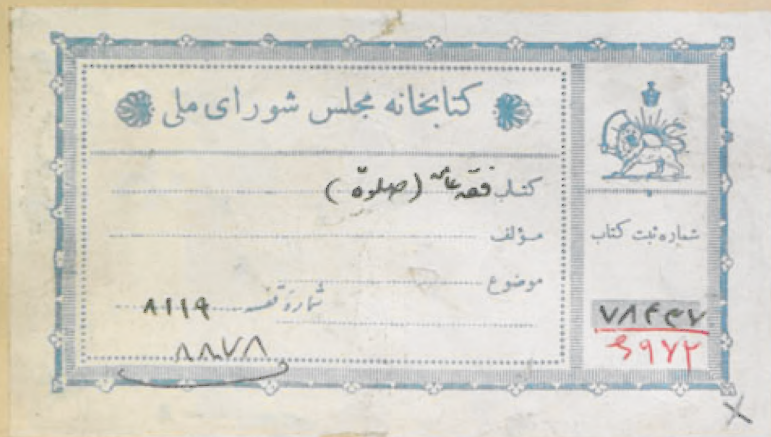 کتابخانه مجلس شورای ملی
کتاب فقه عامه (صلوة)
مؤلف
موضوع
شمارهٔ قفسه ۸۱۱۹
۸۸۷۸
شماره ثبت کتاب
۷۸۴۳۷